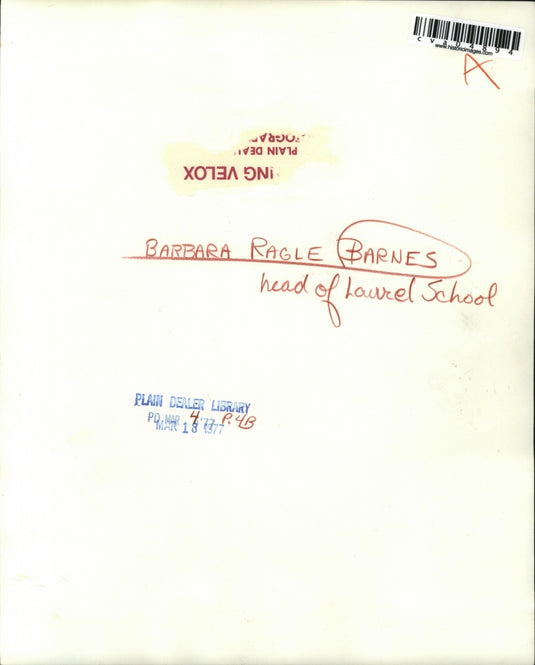 cva04894
www.historicimages.com
A
PLAIN
ING VELOX
BARBARA RAGLE BARNES
head of Laurel School
PLAIN DEALER LIBRARY
PD MAR 4 '77 P. 4B
MAR 18 1977